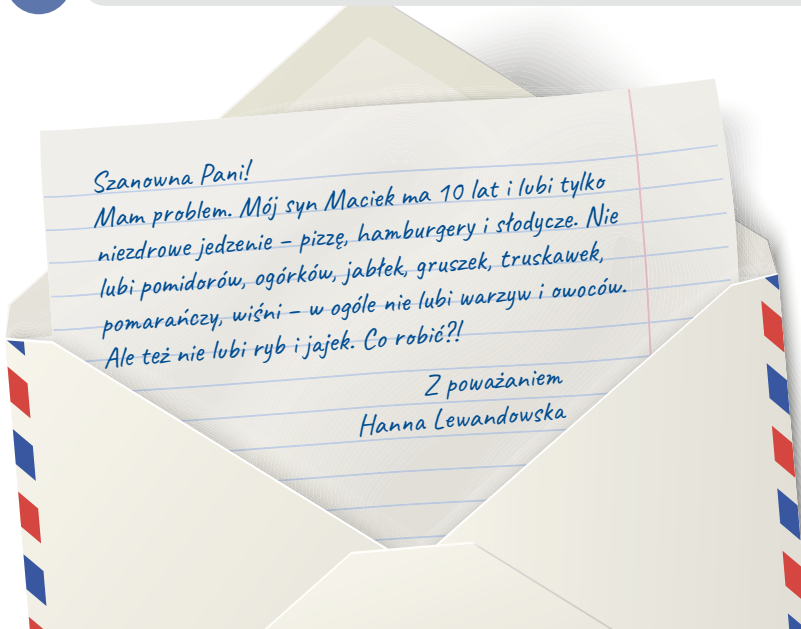 Szanowna Pani!
Mam problem. Mój syn Maciek ma 10 lat i lubi tylko
niezdrowe jedzenie – pizzę, hamburgery i słodycze. Nie
lubi pomidorów, ogórków, jabłek, gruszek, truskawek,
pomarańczy, wiśni – w ogóle nie lubi warzyw i owoców.
Ale też nie lubi ryb i jajek. Co robić?!
Z poważaniem
Hanna Lewandowska